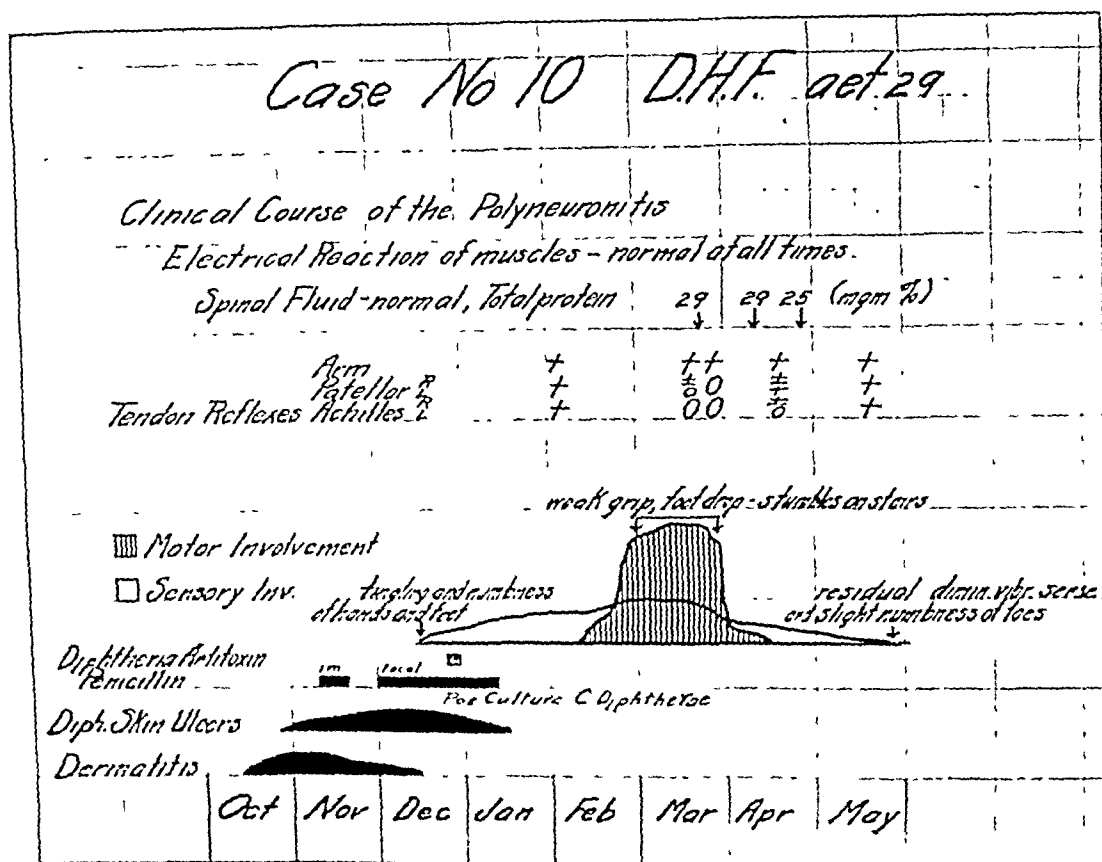 Case No 10 D.H.F. aet 29
Clinical Course of the Polyneuronitis
Electrical Reaction of muscles - normal at all times.
Spinal Fluid - normal, Total protein 29 29 25 (mgm %)
Arm + ++ + +
Patellar R L + ± 0 0 ± + +
Tendon Reflexes Achilles R L + 00 ± 0 +
weak grip, foot drop - stumbles on stairs
Motor Involvement
Sensory Inv.
tingling and numbness
of hands and feet
residual dimin. vibr. sense
and slight numbness of toes
Diphtheria Antitoxin
Penicillin im local
Pos Culture C Diphtheriae
Diph. Skin Ulcers
Dermatitis
Oct Nov Dec Jan Feb Mar Apr May